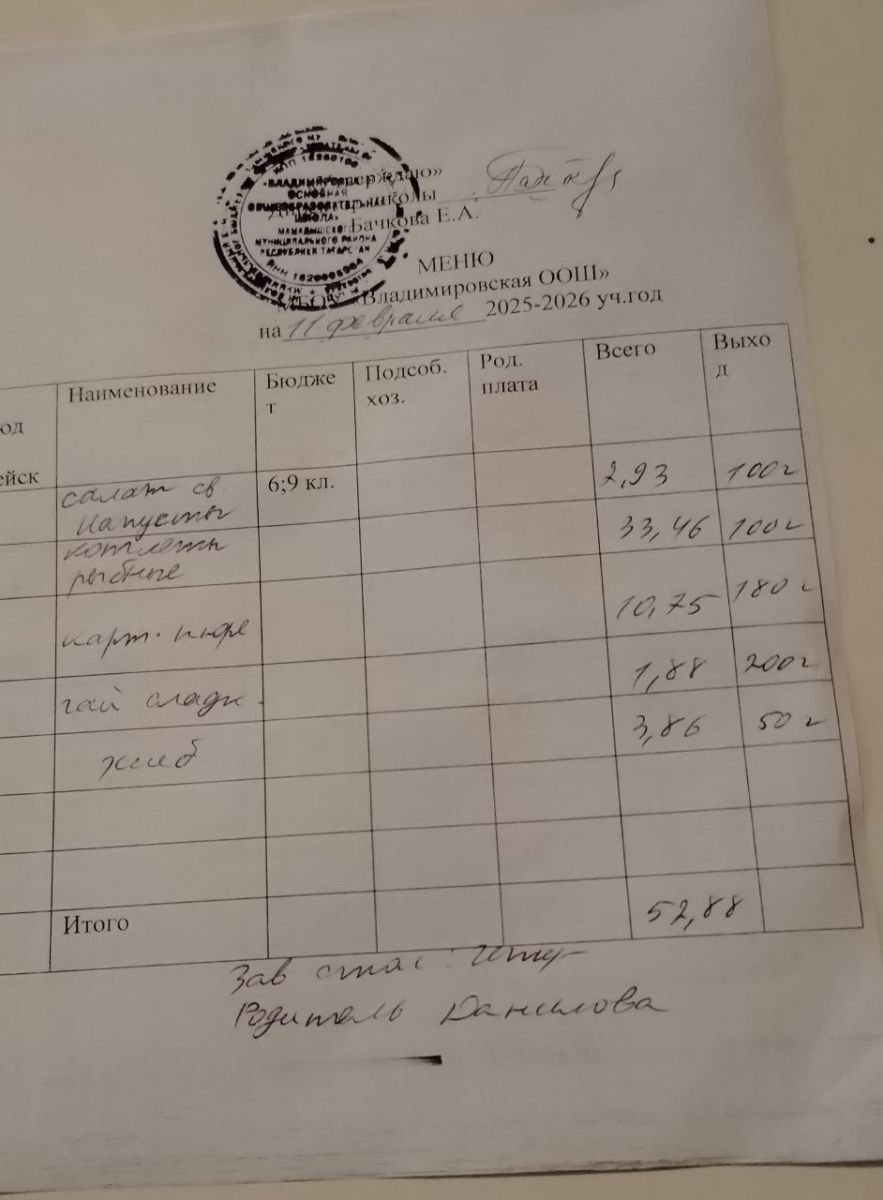 «Утверждаю»
Директор школы
Бачкова Е.А.
КПП 162601001
«ВЛАДИМИРОВСКАЯ
ОСНОВНАЯ
ОБЩЕОБРАЗОВАТЕЛЬНАЯ
ШКОЛА»
МАМАДЫШСКОГО
МУНИЦИПАЛЬНОГО РАЙОНА
РЕСПУБЛИКИ ТАТАРСТАН
МЕНЮ
«Владимировская ООШ»
на 11 февраля 2025-2026 уч.год
од
ейск
Наименование
Бюдже
т
Подсоб.
хоз.
Род.
плата
Всего
Выхо
д
салат св.
капусты
6;9 кл.
2,93
100г
котлеты
рыбные
33,46
100г
карт. пюре
10,75
180г
чай сладк.
1,88
200г
хлеб
3,86
50г
Итого
52,88
Зав стол:
Родитель Данилова